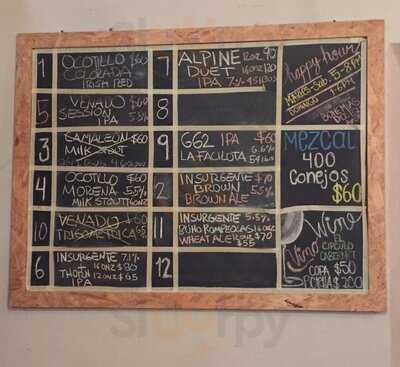 1 OCOTILLO $60
COLORADA
IRISH RED
5 VENADO $60
SESSION 5%
IPA
3 CAMALEON $60
MILK STOUT
4 OCOTILLO $60
MORENA 5.5%
MILK STOUT
10 VENADO $60
TRIGOMETRICA
6 INSURGENTE 7.1%
+ 16ONZ $80
THORN 12ONZ $65
IPA
7 ALPINE 12OZ 90
DUET
IPA 7%
8
9 662 IPA $60
LA FACILOTA 6.6%
2 INSURGENTE $70
BROWN 5.5%
BROWN ALE
11 INSURGENTE 5.5%
BUHO ROMPEOLAS 16ONZ
WHEAT ALE 12ONZ $70
$55
12
happy hour
MARTES-SAB 5-8PM
DOMINGO 1-6PM
MEZCAL
400
CONEJOS
$60
Wine
Vino
CIRCULO
CABERNET
COPA $50
BOTELLA $200